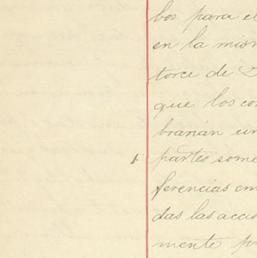 bos para el
en la mism
torce de D
que los con
brarian un
partes some
ferencias em
das las accio
mente pr